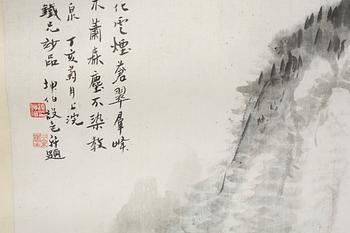 化雲煙蒼翠群峰
木蕭森塵不染教
泉 丁亥菊月上浣
鐵兄妙品 坤伯設色并題